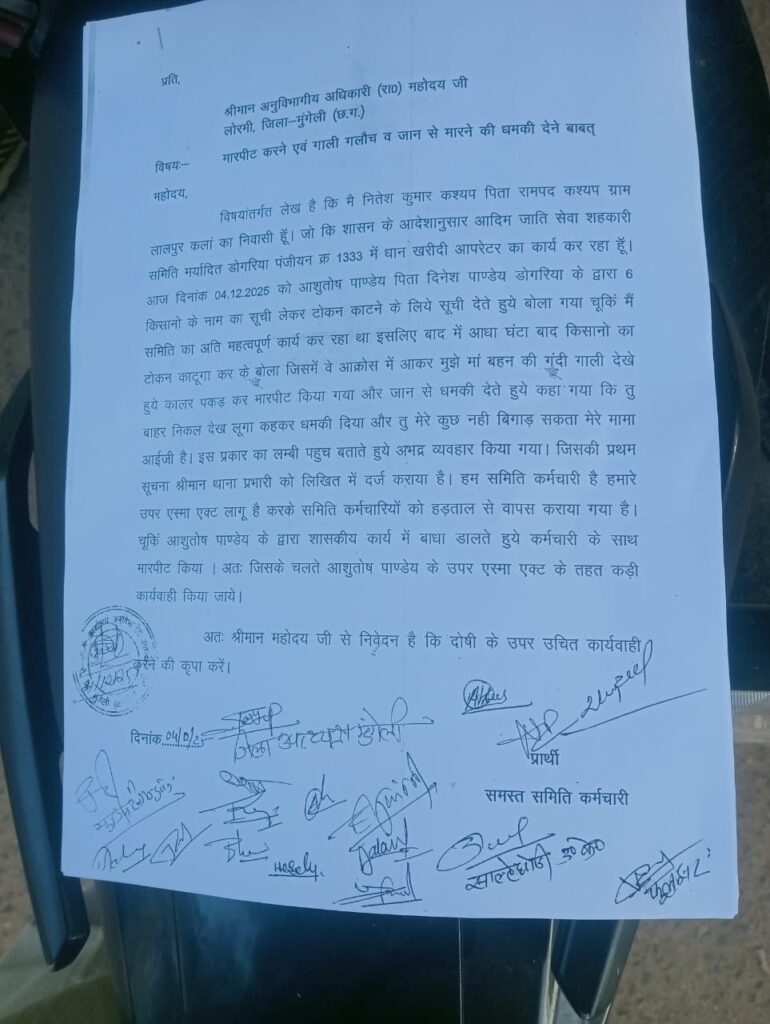 प्रति,
श्रीमान अनुविभागीय अधिकारी (रा0) महोदय जी
लोरमी, जिला–मुंगेली (छ.ग.)
विषयः– मारपीट करने एवं गाली गलौच व जान से मारने की धमकी देने बाबत्
महोदय,
विषयांतर्गत लेख है कि मै नितेश कुमार कश्यप पिता रामपद कश्यप ग्राम
लालपुर कलां का निवासी हूँ। जो कि शासन के आदेशानुसार आदिम जाति सेवा शहकारी
समिति मर्यादित डोगरिया पंजीयन क्र 1333 में धान खरीदी आपरेटर का कार्य कर रहा हूँ।
आज दिनांक 04.12.2025 को आशुतोष पाण्डेय पिता दिनेश पाण्डेय डोगरिया के द्वारा 6
किसानो के नाम का सूची लेकर टोकन काटने के लिये सूची देते हुये बोला गया चूकिं मैं
समिति का अति महत्वपूर्ण कार्य कर रहा था इसलिए बाद में आधा घंटा बाद किसानो का
टोकन काटूगा कर के बोला जिसमें वे आक्रोस में आकर मुझे मां बहन की गुंदी गाली देखे
हुये कालर पकड़ कर मारपीट किया गया और जान से धमकी देते हुये कहा गया कि तु
बाहर निकल देख लूगा कहकर धमकी दिया और तु मेरे कुछ नही बिगाड़ सकता मेरे मामा
आईजी है। इस प्रकार का लम्बी पहुच बताते हुये अभद्र व्यवहार किया गया। जिसकी प्रथम
सूचना श्रीमान थाना प्रभारी को लिखित में दर्ज कराया है। हम समिति कर्मचारी है हमारे
उपर एस्मा एक्ट लागू है करके समिति कर्मचारियों को हड़ताल से वापस कराया गया है।
चूकिं आशुतोष पाण्डेय के द्वारा शासकीय कार्य में बाधा डालते हुये कर्मचारी के साथ
मारपीट किया । अतः जिसके चलते आशुतोष पाण्डेय के उपर एस्मा एक्ट के तहत कड़ी
कार्यवाही किया जाये।
अतः श्रीमान महोदय जी से निवेदन है कि दोषी के उपर उचित कार्यवाही
करने की कृपा करें।
दिनांक
जिला अध्यक्ष मुंगेली
प्रार्थी
समस्त समिति कर्मचारी